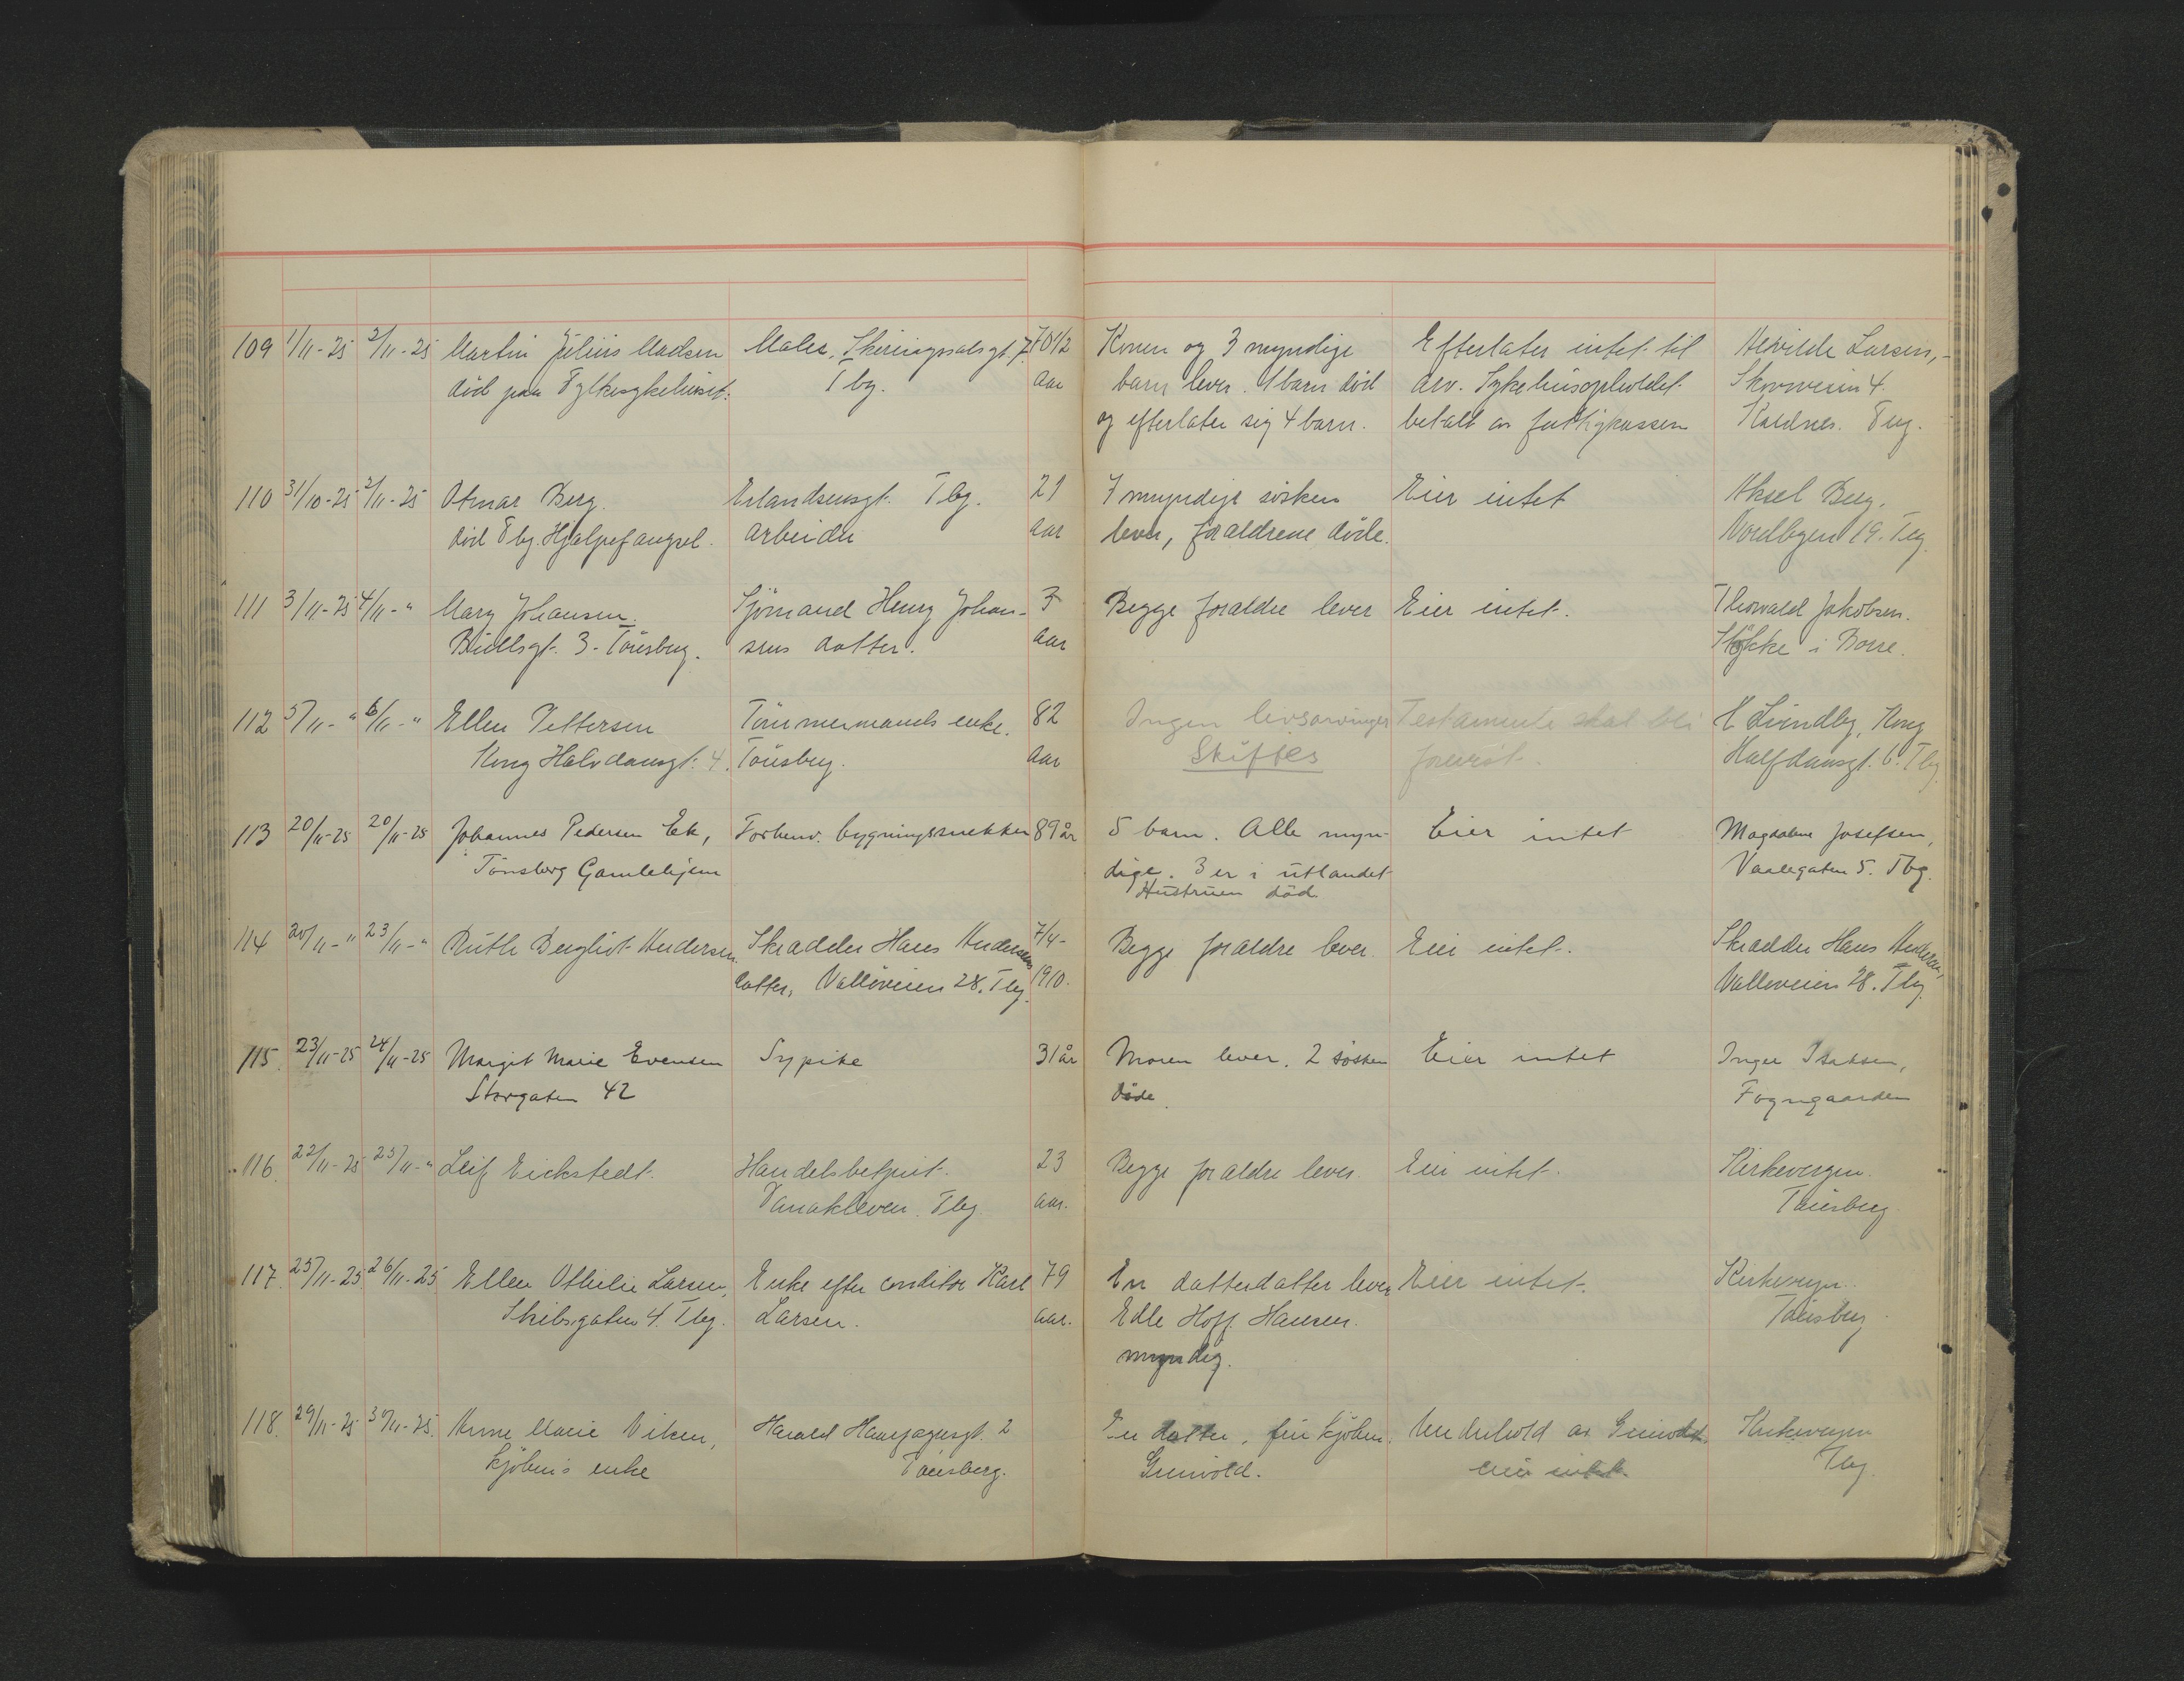 109 1/11-25 2/11-25 Martin Julius Madsen Maler, Skiringssalsgt. 7 70 1/2 Konen og 3 myndige Efterlater intet til Larsen,
død paa Fylkesykehuset. Tbg. aar barn lever. 1 barn død arv. Sykehusopholdet 4.
og efterlater sig 4 barn. betalt av fattigkassen Kaldnes. Tbg.
110 31/10-25 2/11-25 Otmar Berg. Erlandsensgt. Tbg. 21 7 myndige søsken Eier intet Aksel Berg,
død Tbg. Hjælpefængsel. arbeider aar lever, forældrene døde. Nordbyen 19. Tbg.
111 3/11-25 4/11-" Mary Johansen. Sjømand Henry Johan- 3 Begge forældre lever Eier intet. Thorvald Jakobsen.
Büllsgt. 3. Tønsberg. sens datter. aar i Borre.
112 5/11-" 6/11-" Ellen Pettersen Tømmermands enke. 82 Ingen livsarvinger Testamente skal bli Lindby, Kong
Kong Halvdansgt. 4. Tønsberg. aar Skiftes forevist. Halfdansgt. 6. Tbg.
113 20/11-25 20/11-25 Johannes Pedersen Ek, Forhenv. bygningssnekker 89 år 5 barn. Alle myn- Eier intet Magdalene Josefsen,
Tønsberg Gamlehjem dige. 3 er i utlandet Vaalegaten 5. Tbg.
Hustruen död.
114 20/11-" 23/11-" Ruth Bergliot Andersen Skrædder Hans Andersens 7/4- Begge forældre lever. Eier intet. Skrædder Hans Andersen,
datter, Valløveien 28. Tbg. 1910. Valløveien 28. Tbg.
115. 23/11-25 24/11-25 Margit Marie Evensen Sypike 31 år Moren lever. 2 søsken Eier intet Inger Isaksen,
Storgaten 42 døde.
116. 22/11-25 25/11-" Leif Eickstedt. Handelsbetjent. 23 Begge forældre lever. Eier intet. Kirkevergen
Tbg. aar. Tønsberg
117. 25/11-25 26/11-25 Ellen Othilie Larsen, Enke efter conditor Karl 79 En datterdatter lever Eier intet. Kirkevergen
Skibsgaten 4. Tbg. Larsen. aar. Edle Hoff Hansen. Tønsberg
myndig.
118. 29/11-25 30/11-25. Anne Marie Viken, Harald Haarfagersgt. 2 En datter, fru kjøbm. Underhold av Grinvold. Kirkevergen
kjøbm's enke Tønsberg. Grinvold. eier intet. Tbg.